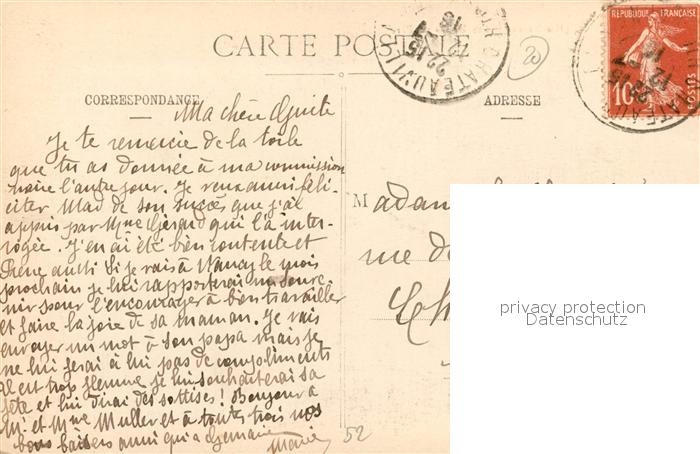 CARTE POSTALE
CORRESPONDANCE
ADRESSE
RÉPUBLIQUE FRANÇAISE
10
POSTES
CHATEAU
22-15
20
Ma chère Guite
Je te remercie de la toile
que tu as donnée à ma commission
naire l'autre jour. Je veux aussi féli-
citer Mad de son succès que j'ai
appris par Mme Gérard qui l'a inter-
rogée. J'en ai été bien contente et
aussi Si je vais à Nancy le mois
prochain je lui rapporterai un souve
nir pour l'encourager à bien travailler
et faire la joie de sa maman. Je vais
envoyer un mot à son papa mais je
ne lui ferai à lui pas de compliments
il est trop flemme je lui souhaiterai sa
fête et lui dirai des sottises! Bonjour à
M. et Mme Muller et à toutes trois nos
bons baisers ainsi qu'a Germaine
Marie
52
Madam
rue de
Ch
privacy protection
Datenschutz